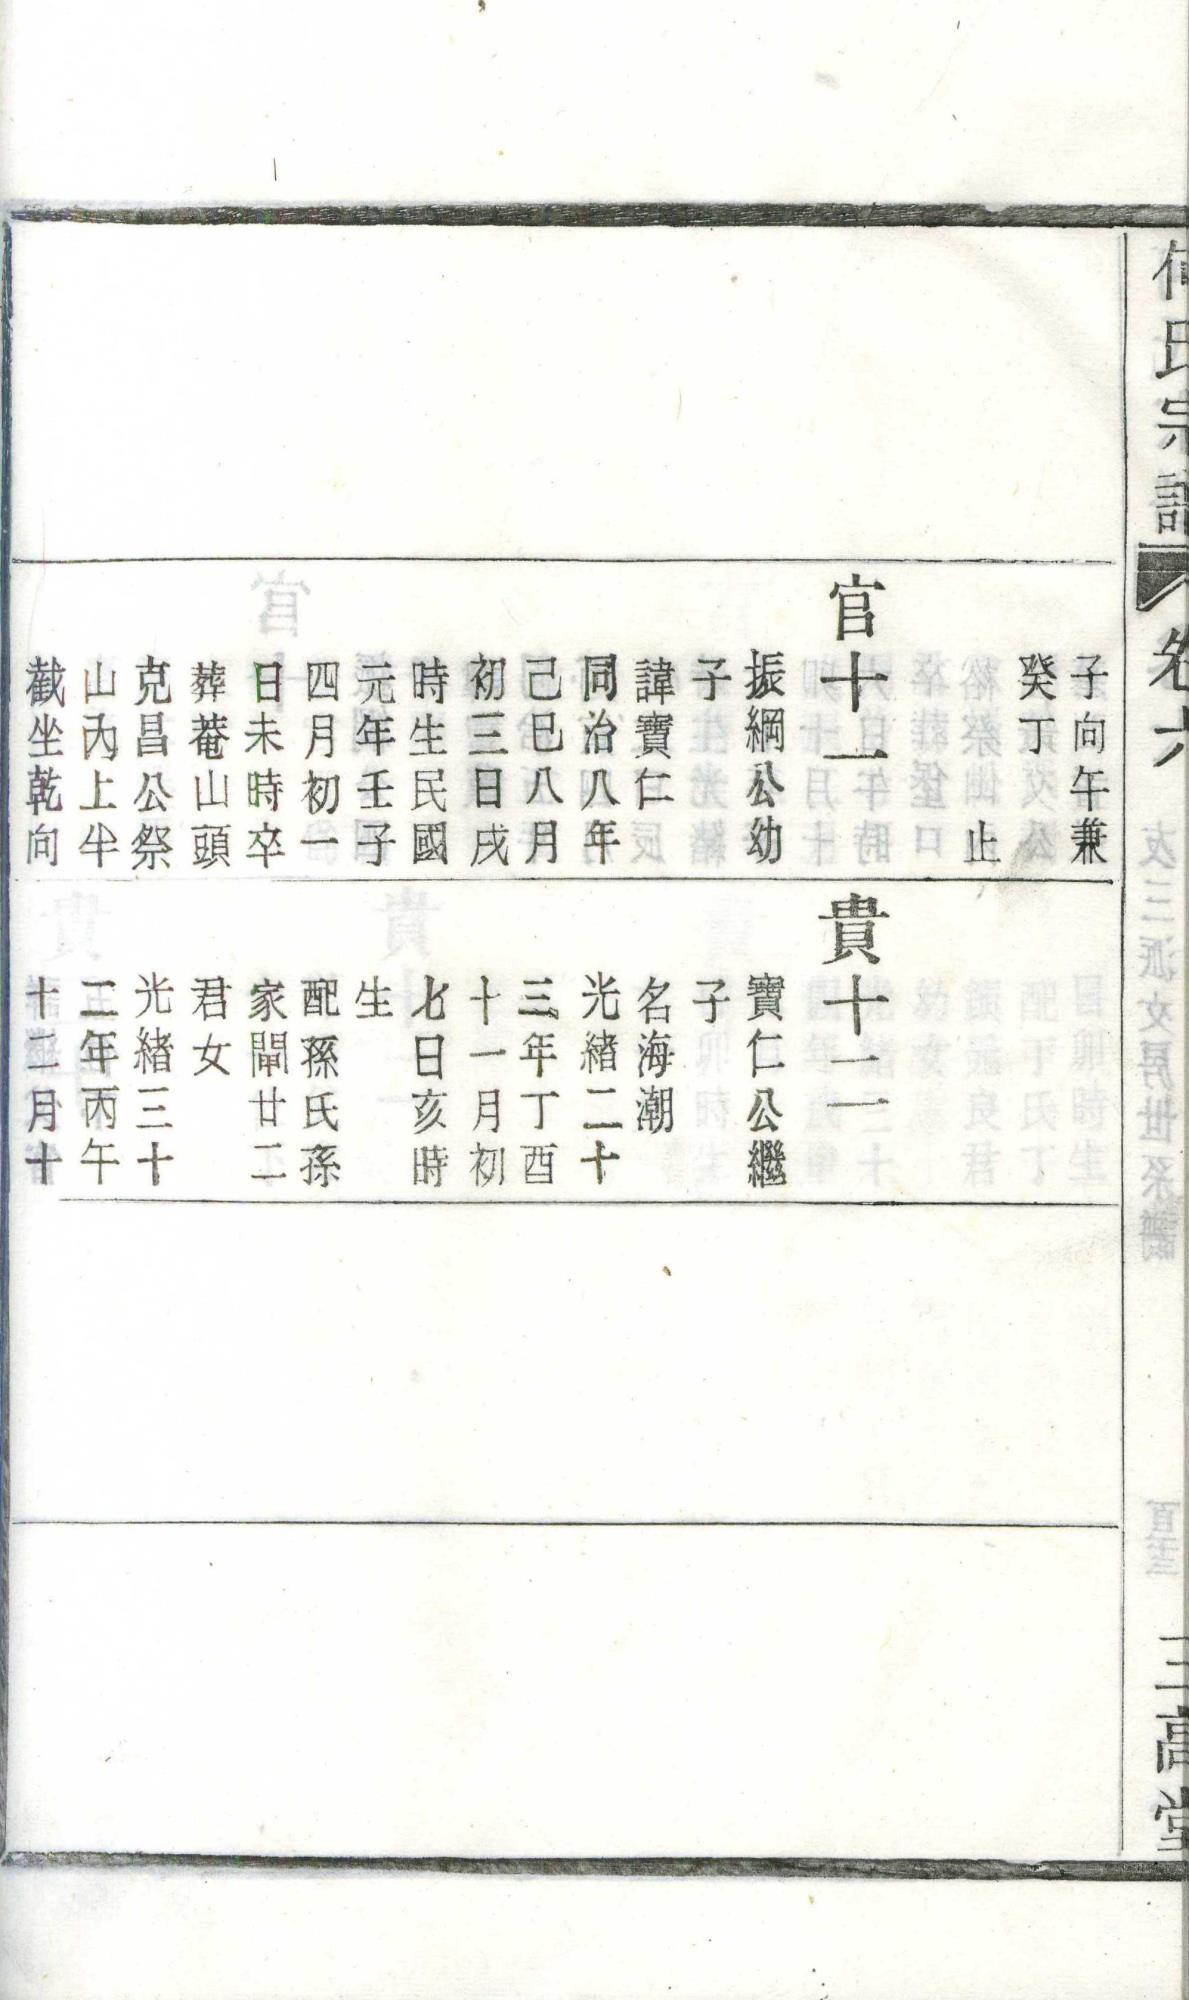 何氏宗譜
卷六
三高堂
子向午兼
癸丁
止
官十一
振綱公幼
子
諱寶仁
同治八年
己巳八月
初三日戌
時生民國
元年壬子
四月初一
日未時卒
葬菴山頭
克昌公祭
山內上半
截坐乾向
貴十二
寶仁公繼
子
名海潮
光緒二十
三年丁酉
十一月初
七日亥時
生
配孫氏孫
家閘廿二
君女
光緒三十
二年丙午
十二月十